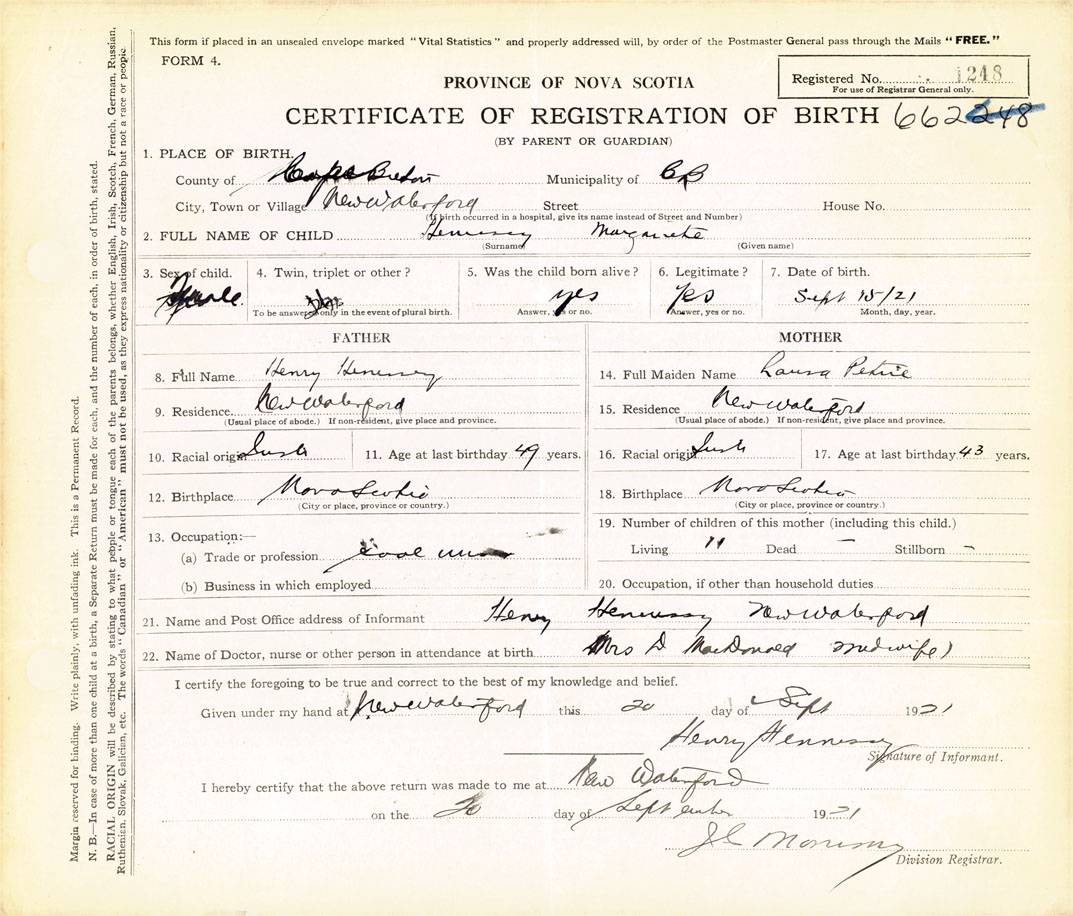 This form if placed in an unsealed envelope marked "Vital Statistics" and properly addressed will, by order of the Postmaster General pass through the Mails "FREE."
FORM 4.
Registered No. 1248
For use of Registrar General only.
PROVINCE OF NOVA SCOTIA
CERTIFICATE OF REGISTRATION OF BIRTH 662248
(BY PARENT OR GUARDIAN)
1. PLACE OF BIRTH.
County of Cape Breton Municipality of CB
City, Town or Village New Waterford Street House No.
(If birth occurred in a hospital, give its name instead of Street and Number)
2. FULL NAME OF CHILD Hennessy Margarete
(Surname) (Given name)
3. Sex of child. 4. Twin, triplet or other? 5. Was the child born alive? 6. Legitimate? 7. Date of birth.
Female yes Yes Sept 15/21
To be answered only in the event of plural birth. Answer, yes or no. Answer, yes or no. Month, day, year.
FATHER
8. Full Name Henry Henessey
9. Residence New Waterford
(Usual place of abode.) If non-resident, give place and province.
10. Racial origin Irish 11. Age at last birthday 49 years.
12. Birthplace Nova Scotia
(City or place, province or country.)
13. Occupation:—
(a) Trade or profession coal
(b) Business in which employed
MOTHER
14. Full Maiden Name Laura Petrie
15. Residence New Waterford
(Usual place of abode.) If non-resident, give place and province.
16. Racial origin Irish 17. Age at last birthday 43 years.
18. Birthplace Nova Scotia
(City or place, province or country.)
19. Number of children of this mother (including this child.)
Living 11 Dead – Stillborn –
20. Occupation, if other than household duties
21. Name and Post Office address of Informant Henry Hennessy New Waterford
22. Name of Doctor, nurse or other person in attendance at birth Mrs D MacDonald midwife)
I certify the foregoing to be true and correct to the best of my knowledge and belief.
Given under my hand at New Waterford this 20 day of Sept 1921
Henry Hennessy
Signature of Informant.
I hereby certify that the above return was made to me at New Waterford
on the 20 day of September 1921
Division Registrar.
Margin reserved for binding. Write plainly, with unfading ink. This is a Permanent Record.
N. B.—In case of more than one child at a birth, a Separate Return must be made for each, and the number of each, in order of birth, stated.
RACIAL ORIGIN will be described by stating to what people or tongue each of the parents belongs, whether English, Irish, Scotch, French, German, Russian,
Ruthenian, Slovak, Galician, etc. The words "Canadian" or "American" must not be used, as they express nationality or citizenship but not a race or people.